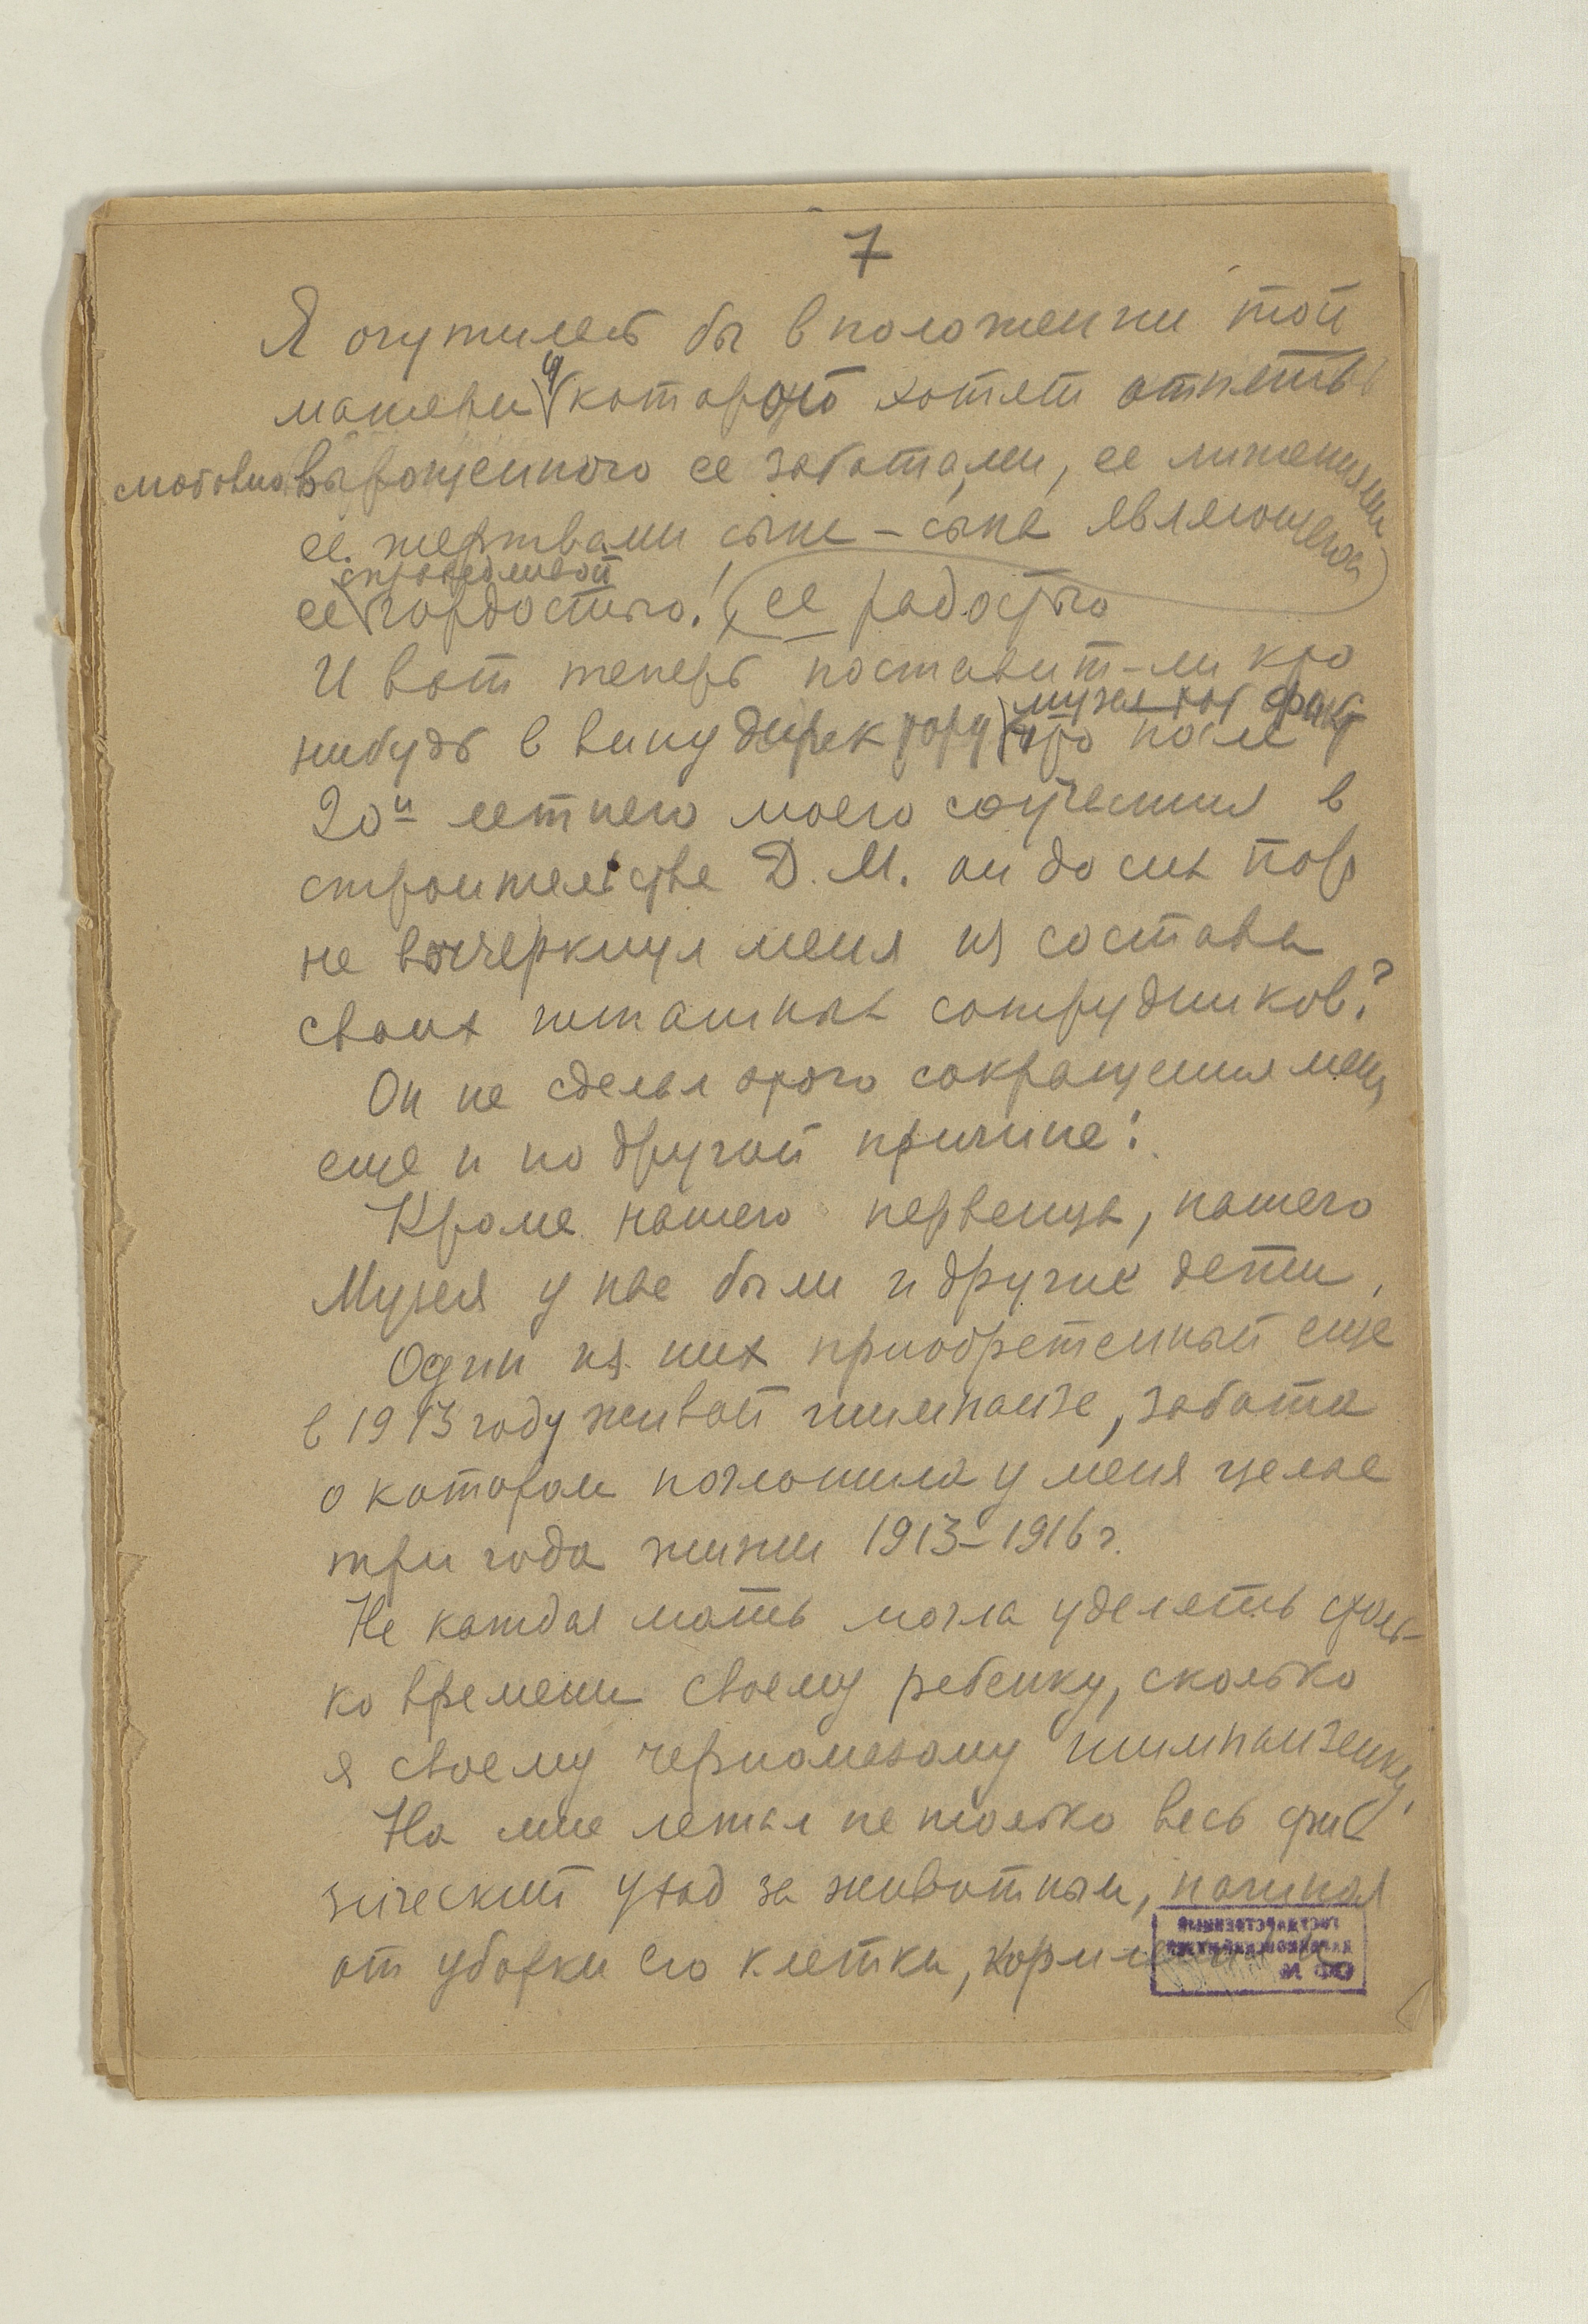 7
Я очутилась бы в положении той
матери у которой хотят отнять
любовно выращенного ее заботами, ее лишениями
ее жертвами сына – сына являющегося
справедливой
ее гордостью! ее радостью
И вот теперь поставит-ли кто
музея тот факт
нибудь в вину директору что после
20и летнего моего соучастия в
строительстве Д. М. он до сих пор
не вычеркнул меня из состава
своих штатных сотрудников?
Он не сделал этого сокращения меня
еще и по другой причине:
Кроме нашего первенца, нашего
Музея у нас были и другие дети.
Один из них приобретенный еще
в 1913 году живой шимпанзе, забота
о котором поглотила у меня целые
три года жизни 1913–1916 г.
Не каждая мать могла уделять столь-
ко времени своему ребенку, сколько
я своему черномазому шимпанзенку,
На мне лежал не только весь фи-
зический уход за животным, начиная
от уборки его клетки,